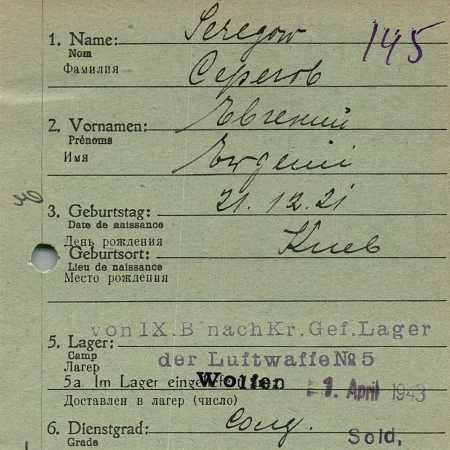 Seregow
1. Name:
Nom
Фамилия
145
Серегов
Евгений
2. Vornamen:
Prénoms
Имя
Ewgenii
21.12.21
3. Geburtstag:
Date de naissance
День рождения
Киев
Geburtsort:
Lieu de naissance
Место рождения
von IX.B nach Kr.Gef.Lager
5. Lager:
Camp
Лагерь
der Luftwaffe № 5
Wolfen
5a. Im Lager
1. April 1943
Доставлен в лагерь (число)
6. Dienstgrad:
Grade
солд.
Sold,